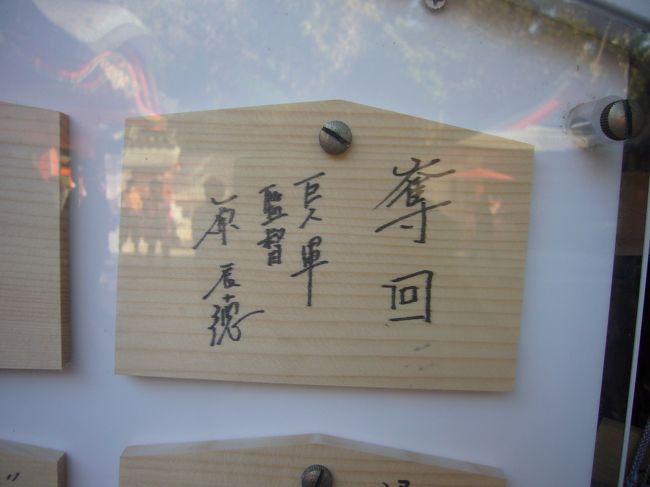 奪回
巨人軍
監督
原辰徳